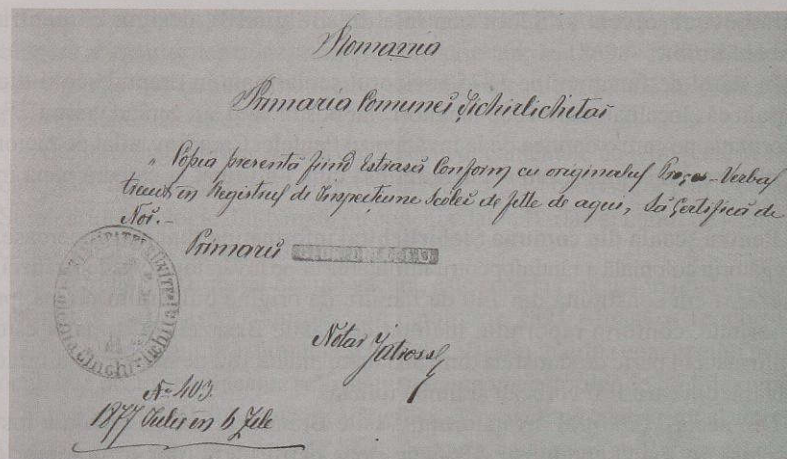 Romania
Primaria Comunei Ischirlichitai
„ Copia presentă fiind Estrasă Conform cu originaluł Proces-Verbal
trecut in Registrul de Inspecțiune Scólei de fette de aqui, Să Certifică de
Noi.-
Primaru
Notar
No 403.
1877 Iulei in 6 Zile